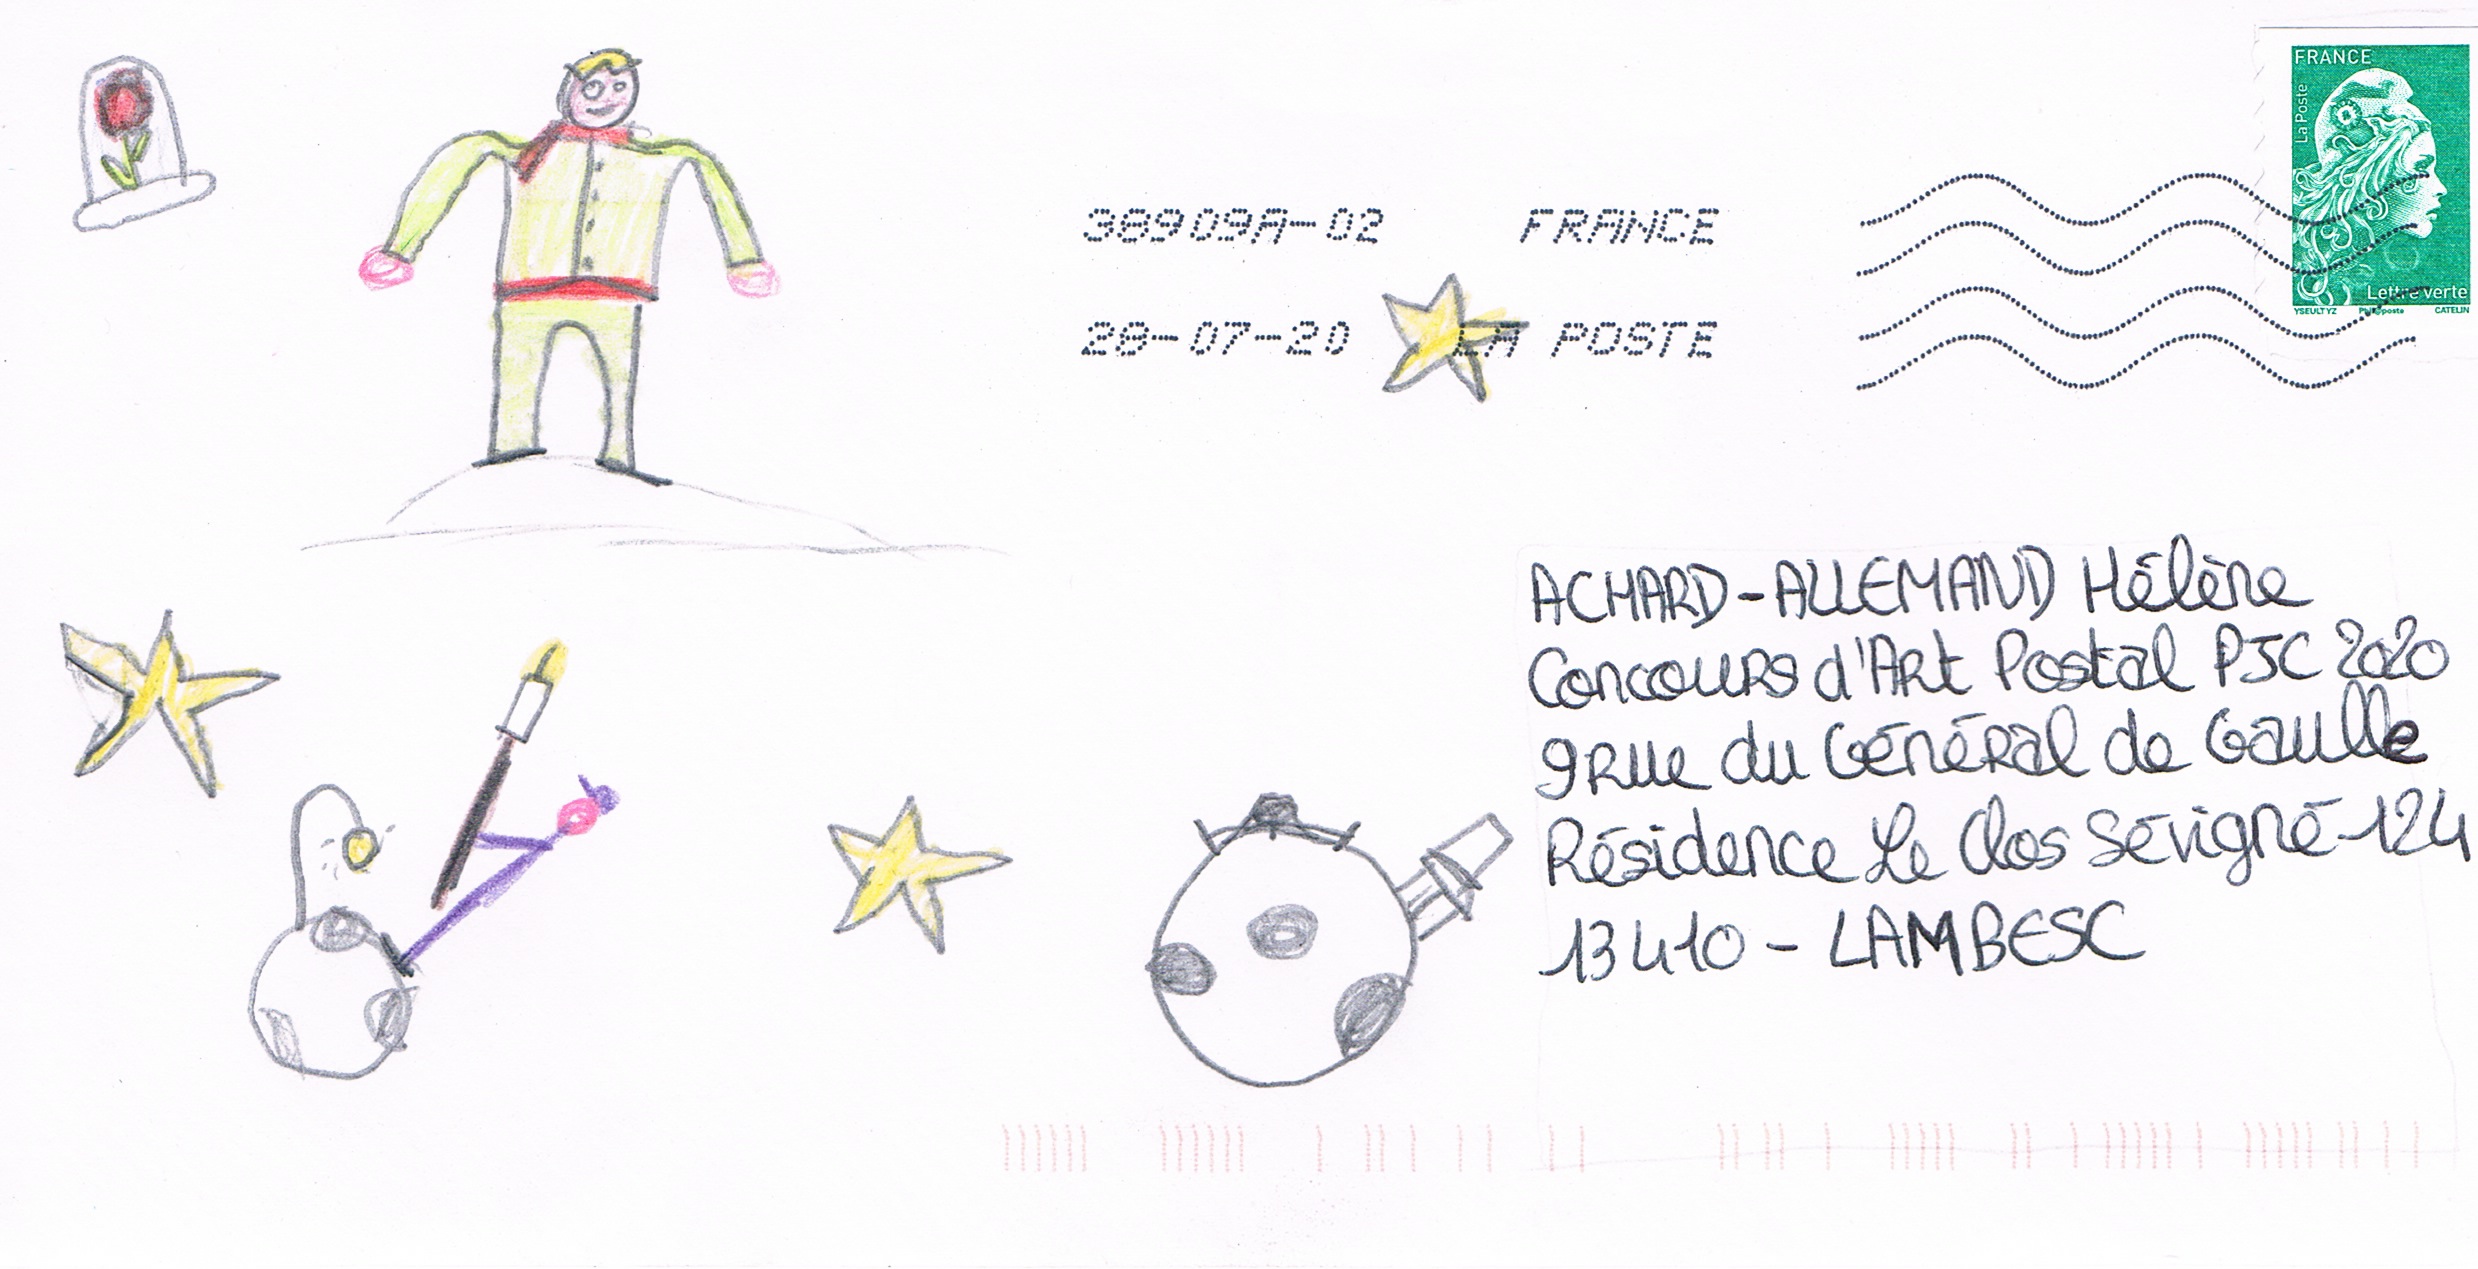 FRANCE
La Poste
Lettre verte
YSEULTYZ Phil@poste CATELIN
38909A-02 FRANCE
28-07-20 LA POSTE
ACHARD-ALLEMAND Hélène
Concours d'Art Postal PJC 2020
9 Rue du Général de Gaulle
Résidence Le Clos Sévigné-124
13410 - LAMBESC